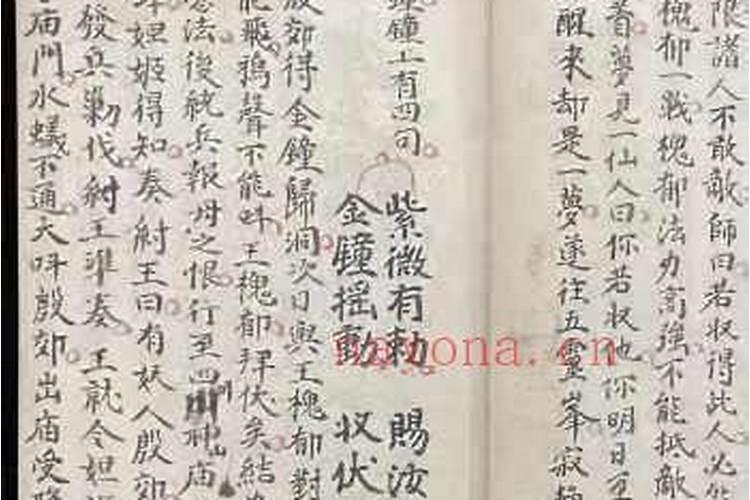 限諸人不敢敵師曰若収得此人必能
槐郁一戰槐郁法力高強不能抵敵
首夢見一仙人曰你若収他你明日可
醒來却是一夢遂往五靈峯寂
鐘上有四句
紫微有勅 賜汝
金鐘摇動 収伏
殷郊得金鐘歸洞次日與王槐郁對
能飛鴉聲不能呌王槐郁拜伏矣結
法後統兵報母之恨行至四川神庙
妲姬得知奏紂王曰有妖人殷郊
發兵勦伐紂王準奏王就令妲
庙門水蟻不通大呌殷郊出庙受
naxona.cn